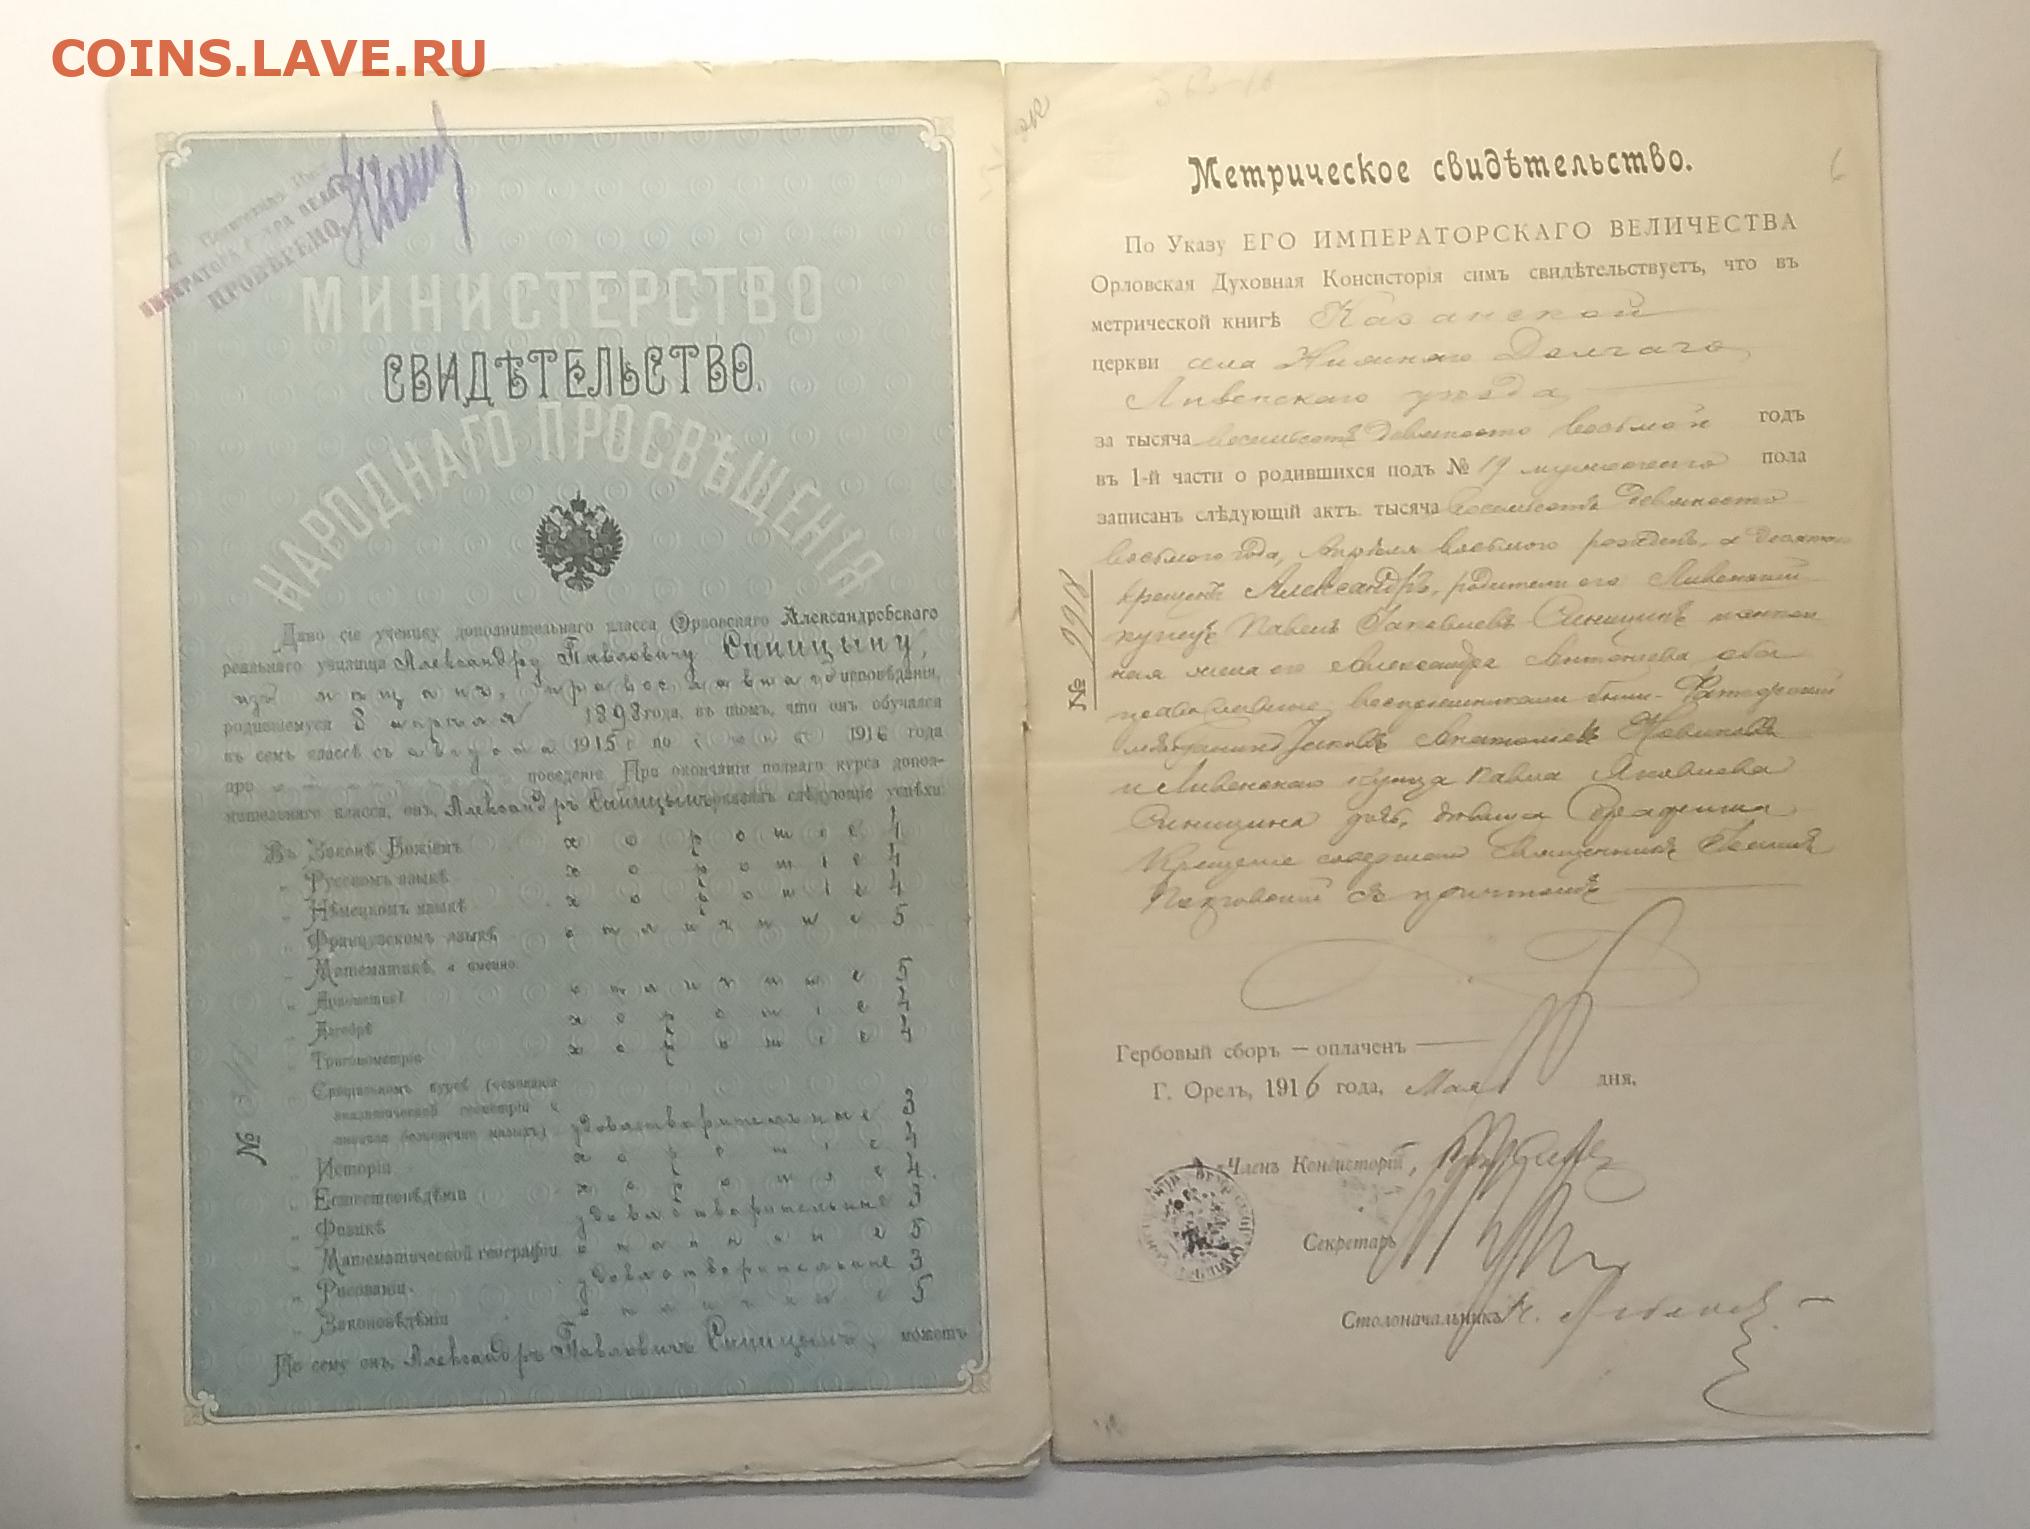 COINS.LAVE.RU
ИМПЕРАТОРА
ПРОВѢРЕНО.
МИНИСТЕРСТВО
СВИДѢТЕЛЬСТВО.
НАРОДНАГО ПРОСВѢЩЕНІЯ
Дано сіе ученику дополнительнаго класса Орловскаго Александровскаго
реальнаго училища Александру Павловичу Синицыну,
изъ мѣщанъ, православнаго исповѣданія,
родившемуся 8 апрѣля 1898 года, въ томъ, что онъ обучался
въ семъ классѣ съ августа 1915 г по 1916 года
при поведеніи. При окончаніи полнаго курса допол-
нительнаго класса, онъ, Александръ Синицынъ оказалъ слѣдующіе успѣхи:
Въ Законѣ Божіемъ хорошіе 4
„ Русскомъ языкѣ хорошіе 4
„ Нѣмецкомъ языкѣ хорошіе 4
„ Французскомъ языкѣ отличные 5
„ Математикѣ, а именно:
„ Ариѳметикѣ отличные 5
„ Алгебрѣ хорошіе 4
„ Тригонометріи хорошіе 4
Спеціальномъ курсѣ (основанія
аналитической геометріи и
анализа безконечно малыхъ) удовлетворительные 3
„ Исторіи хорошіе 4
„ Естествовѣдѣніи хорошіе 4.
„ Физикѣ удовлетворительные 3
„ Математической географіи отличные 5
„ Рисованіи удовлетворительные 3
„ Законовѣдѣніи отличные 5
По сему онъ, Александръ Павловичъ Синицынъ, можетъ
№
Метрическое свидѣтельство.
6
По Указу ЕГО ИМПЕРАТОРСКАГО ВЕЛИЧЕСТВА
Орловская Духовная Консисторія симъ свидѣтельствуетъ, что въ
метрической книгѣ Казанской
церкви села Нижняго Долгаго
Ливенскаго уѣзда
за тысяча восемьсотъ девяносто восьмой годъ
въ 1-й части о родившихся подъ № 19 мужескаго пола
записанъ слѣдующій актъ: тысяча восемьсотъ девяносто
восьмого года, Апрѣля восьмого рожденъ, а десятаго
крещенъ Александръ, родители его Ливенскій
купецъ Павелъ Іаковлевъ Синицинъ и закон
ная жена его Александра Антониева, оба
православные, воспріемниками были:
мѣщанинъ Іаковъ Новиковъ
и Ливенскаго купца Павла Яковлева
Синицина дочь, дѣвица Серафима
Крещеніе совершалъ Священникъ
Покровскій съ причтомъ
Гербовый сборъ — оплаченъ
Г. Орелъ, 1916 года, Мая дня.
Членъ Консисторіи,
Секретарь
Столоначальникъ
№